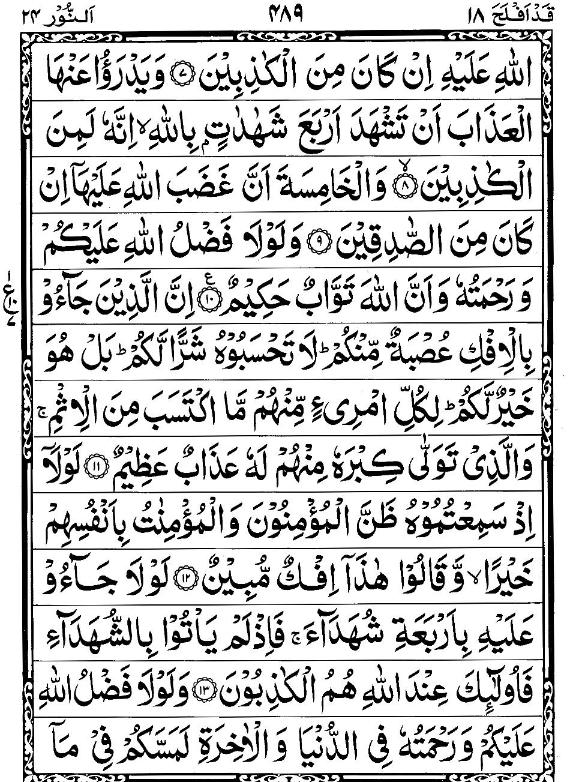 قَدْ اَفْلَحَ ۱۸ ۴۸۹ اَلنُّوْر ۲۴
اللّٰهِ عَلَيْهِ اِنْ كَانَ مِنَ الْكٰذِبِيْنَ ۷ وَيَدْرَؤُا عَنْهَا
الْعَذَابَ اَنْ تَشْهَدَ اَرْبَعَ شَهٰدٰتٍۭ بِاللّٰهِ ۙ اِنَّهٗ لَمِنَ
الْكٰذِبِيْنَ ۙ ۸ وَالْخَامِسَةَ اَنَّ غَضَبَ اللّٰهِ عَلَيْهَاۤ اِنْ
كَانَ مِنَ الصّٰدِقِيْنَ ۹ وَلَوْلَا فَضْلُ اللّٰهِ عَلَيْكُمْ
وَرَحْمَتُهٗ وَاَنَّ اللّٰهَ تَوَّابٌ حَكِيْمٌ ۱۰ ع اِنَّ الَّذِيْنَ جَآءُوْ
بِالْاِفْكِ عُصْبَةٌ مِّنْكُمْ ؕ لَا تَحْسَبُوْهُ شَرًّا لَّكُمْ ؕ بَلْ هُوَ
خَيْرٌ لَّكُمْ ؕ لِكُلِّ امْرِیءٍ مِّنْهُمْ مَّا اكْتَسَبَ مِنَ الْاِثْمِ ۚ
وَالَّذِيْ تَوَلّٰى كِبْرَهٗ مِنْهُمْ لَهٗ عَذَابٌ عَظِيْمٌ ۱۱ لَوْلَاۤ
اِذْ سَمِعْتُمُوْهُ ظَنَّ الْمُؤْمِنُوْنَ وَالْمُؤْمِنٰتُ بِاَنْفُسِهِمْ
خَيْرًا ۙ وَّقَالُوْا هٰذَاۤ اِفْكٌ مُّبِيْنٌ ۱۲ لَوْلَا جَآءُوْ
عَلَيْهِ بِاَرْبَعَةِ شُهَدَآءَ ۚ فَاِذْ لَمْ يَاْتُوْا بِالشُّهَدَآءِ
فَاُولٰٓئِكَ عِنْدَ اللّٰهِ هُمُ الْكٰذِبُوْنَ ۱۳ وَلَوْلَا فَضْلُ اللّٰهِ
عَلَيْكُمْ وَرَحْمَتُهٗ فِى الدُّنْيَا وَالْاٰخِرَةِ لَمَسَّكُمْ فِيْ مَاۤ